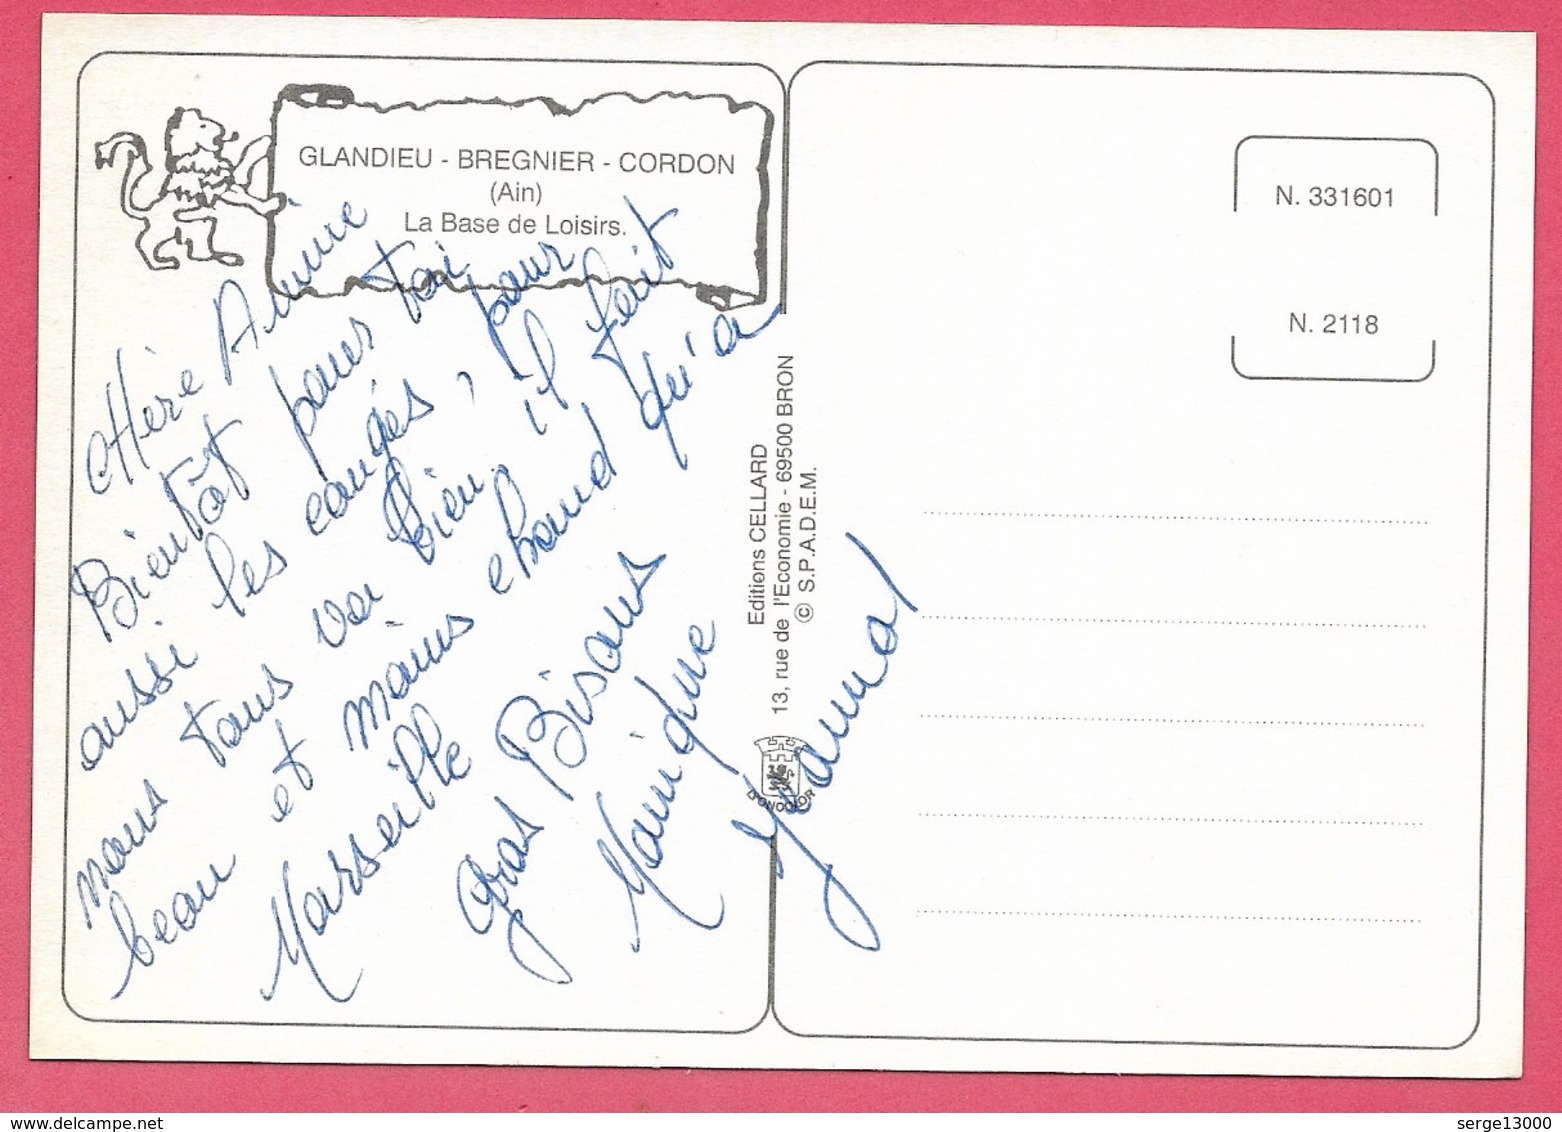 GLANDIEU - BREGNIER - CORDON
(Ain)
La Base de Loisirs.
N. 331601
N. 2118
Editions CELLARD
13, rue de l'Economie - 69500 BRON
© S.P.A.D.E.M.
LYONOCLOR
Chère
Bientôt pour toi
aussi les congés, pour
nous tous va bien. il fait
beau et moins chaud qu'a
Marseille
Gros Bisous
Monique
serge13000